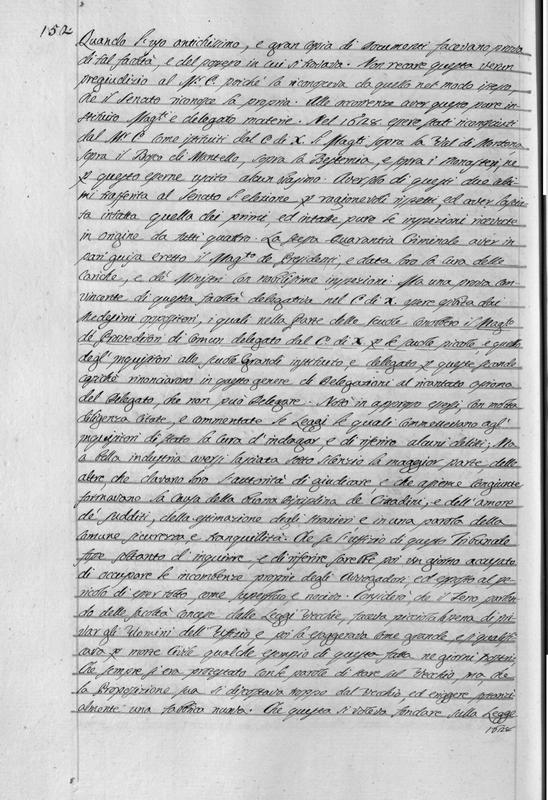 152
Quando l'uso antichissimo, e gran copia di documenti facevano prova
di tal facoltà, e del possesso in cui si trovava. Non recare questa verun
pregiudizio al M.r C. poiché la riconosceva da quello nel modo stesso,
che il Senato riconosce la propria. Alle occorrenze aver questo pure in-
stituito Mag.ti e delegato materie. Nel 1628 essere stati riconosciuti
dal M.r C. come istituiti dal C. di X. li Mag.ti sopra la Val di Montona
sopra il Bosco di Montello, sopra la Bestemia, e sopra i Monasterj, ne
p questo esserne uscito alcun
mi trasferita al Senato l'elezione p ragionevoli rispetti, ed aver lascia-
ta intatta quella dai primi, ed intatte pure le ispezioni ricevute
in origine da tutti quattro. La stessa Quarantia Criminale aver in
pari guisa eretto il Mag.to de Presidenti, e data loro la cura delle
Cariche, e de' Ministri con nobilissime ispezioni. Ma una prova con-
vincente di questa facoltà delegativa nel C. di X. essere dai
medesimi oppositori, i quali nella Parte delle scuole il Mag.to
de' Proveditori di Comun delegato dal C. di X. p le scuole piccole e quello
degl'Inquisitori alle scuole Grandi instituito, e delegato p queste
rinonciavano in questo genere di Delegazioni al
del Delegato, che non può Delegare. Notò in appresso essersi con molta
diligenza citate, e commentate le Leggi le quali commettevano agl'
Inquisitori di Stato la cura d'indagar, e di riferire alcuni delitti; Ma
a bella industria aversi lasciata sotto silenzio la maggior parte delle
altre, che davano loro l'autorità di giudicare, e che assieme congiunte
formavano la Causa della buona disciplina de' Cittadini, e dell'amore
de' sudditi, della estimazione degli stranieri e in una parola della
comune sicurezza e tranquillità. Che se l'uffizio di questo Tribunale
fosse soltanto d'inquirere, e di riferire sarebbe poi un giorno accusato
di occupare le incombenze proprie degli Avvogadori, ed esposto al pe-
ricolo di esser tolto come superfluo, e nocivo. Considerò, che il Savio parlan-
do delle facoltà concesse dalle Leggi Vecchie, faceva picciola la pena di pri-
var gli Uomini dell'Uffizio e poi la esaggerava come grande e si qualifi-
cava p morte civile qualche esempio di questa fatta ne giorni
Che sempre s'era protestato con le parole di stare sul Vecchio, ma, che
la Proposizione sua si discostava troppo dal Vecchio, ed erigere
almente una fabbrica nuova. Che questa si voleva fondare sulla Legge
1628